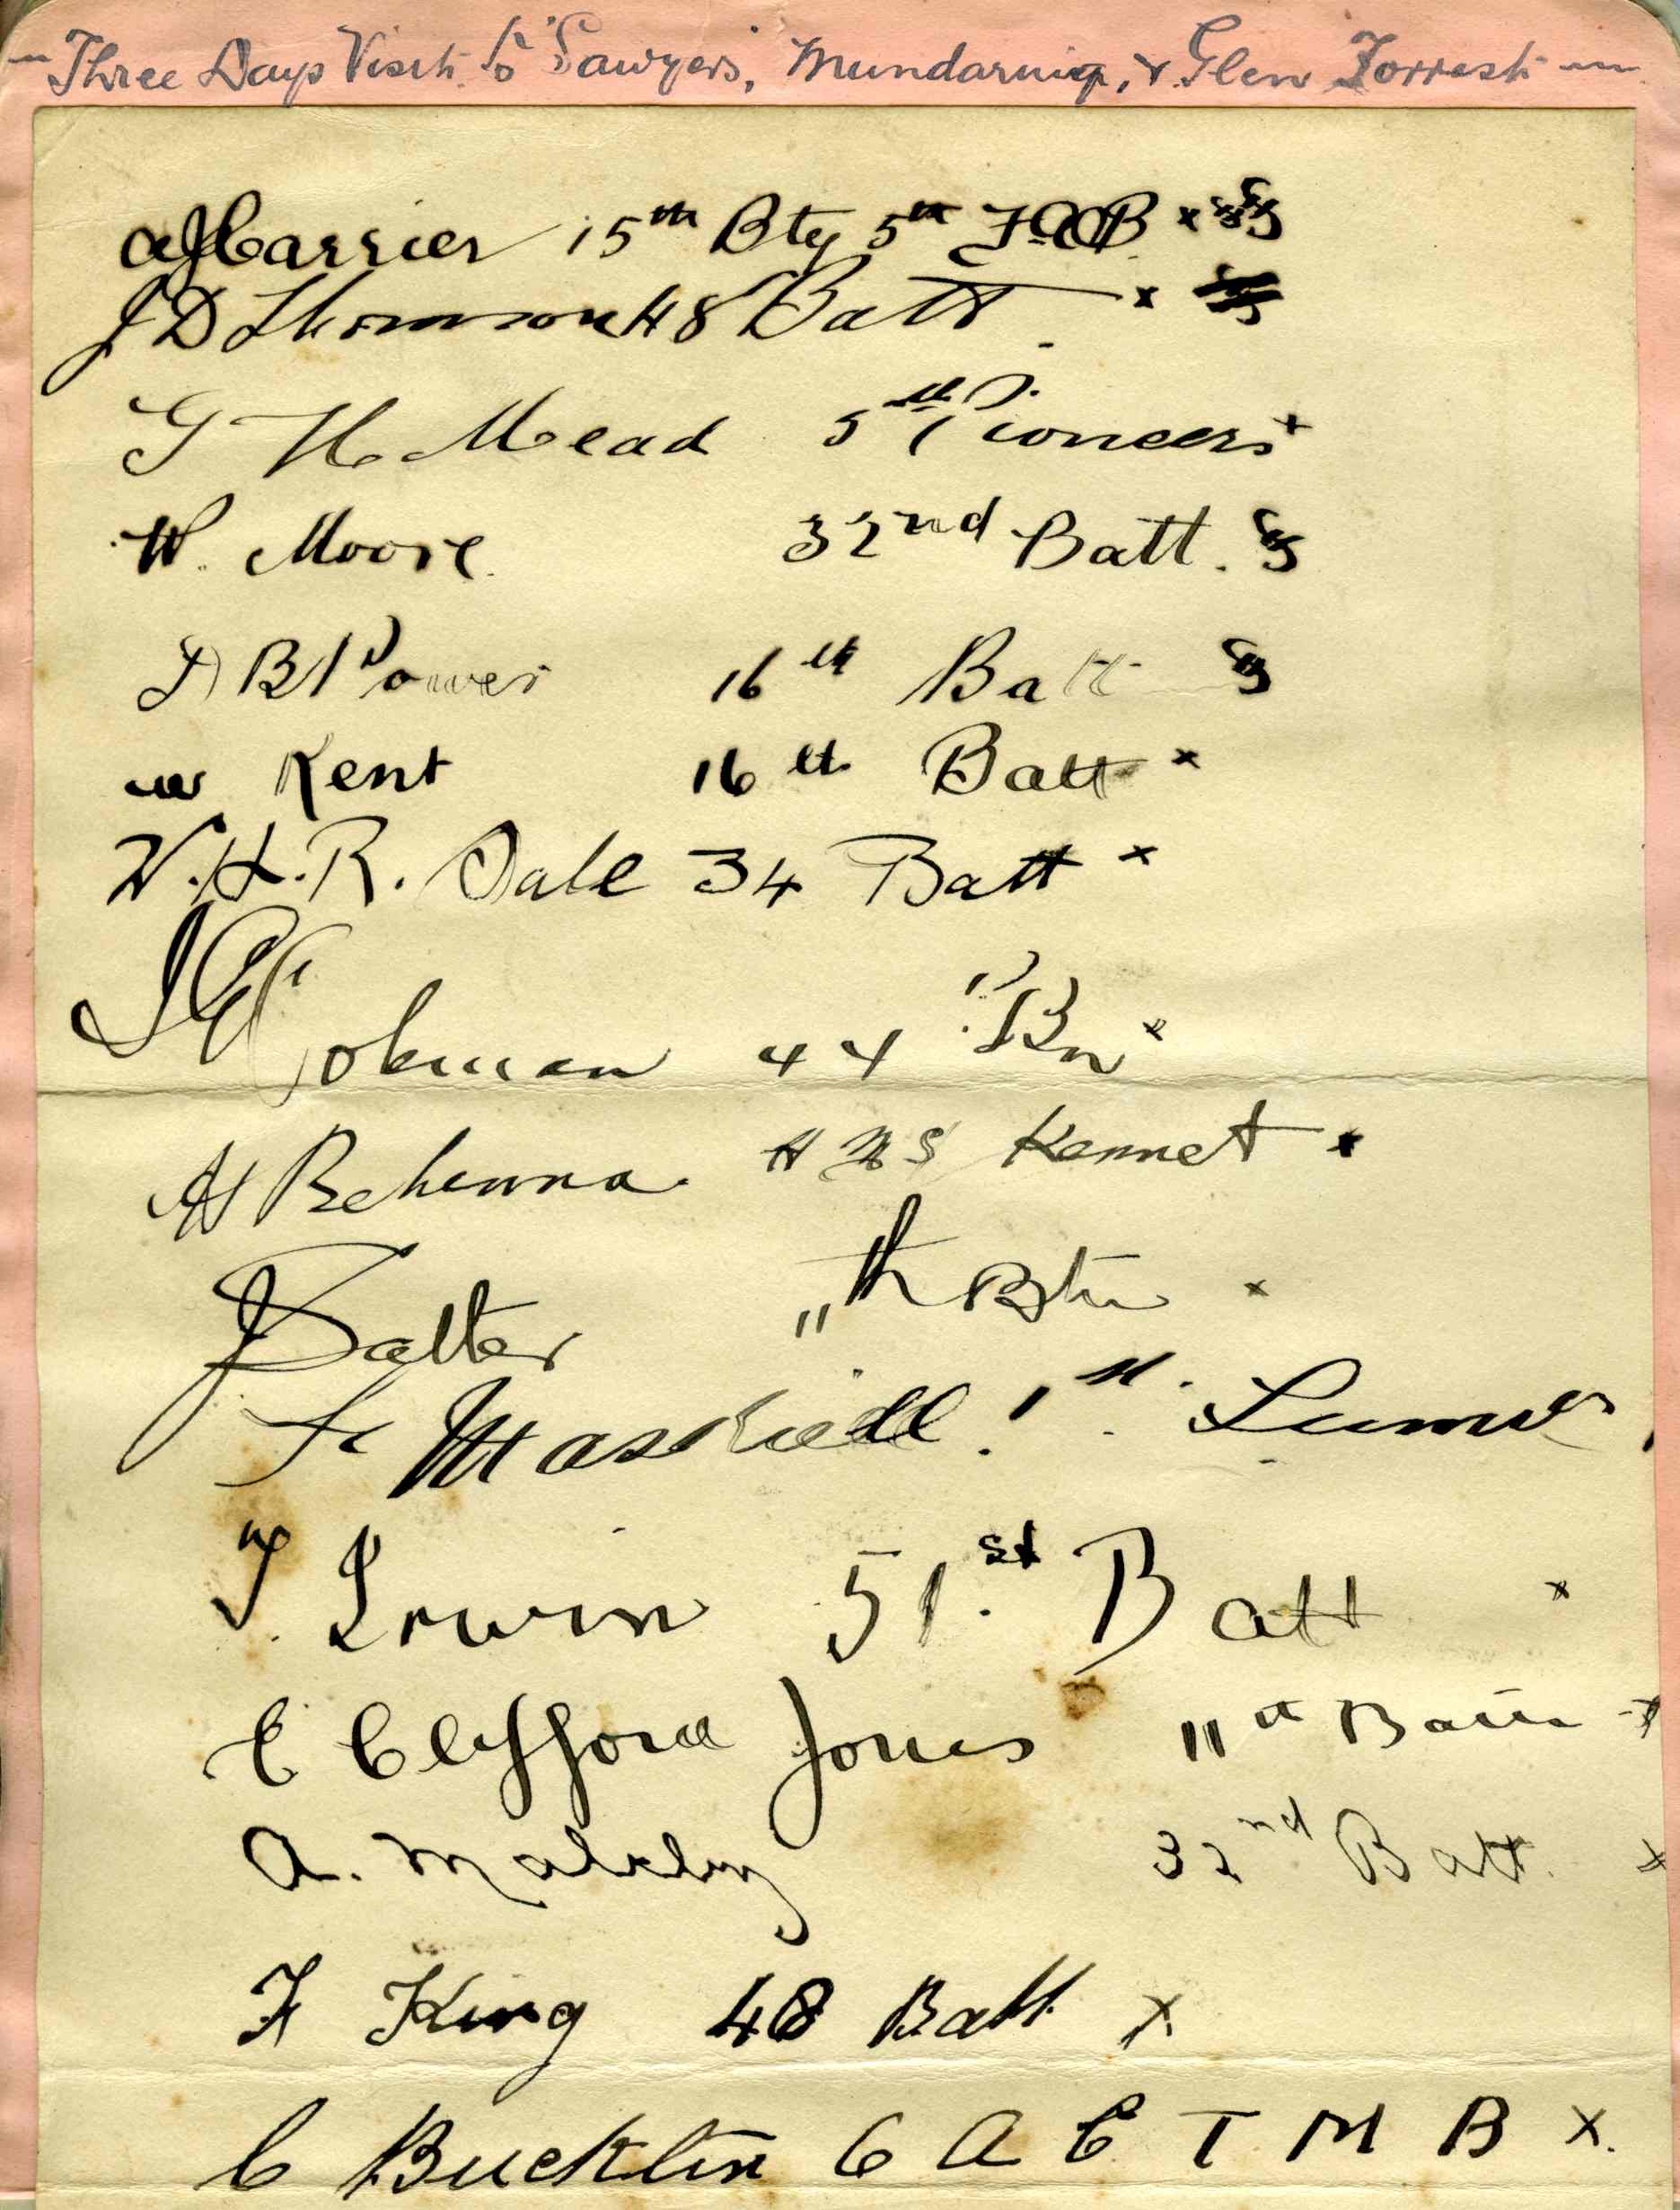 Three Days Visit to Sawyers, Mundaring, & Glen Forrest
A J Carrier 15th Bty 5th F.A.B. x
J D Thomson 48 Batt x
G H Mead 5th Pioneers x
W. Moore 32nd Batt.
D B Power 16th Batt
W Kent 16th Batt x
W.H.R. Dale 34 Batt x
44 Bn x
H Behenna HMS Kennet x
J Salter 11th Btn x
Maskiell 1st
T. Irwin 51st Batt x
E Clifford Jones 11th Batt x
A. 32nd Batt. x
F King 48 Batt x
C Bucktin 6 A C T M B x.